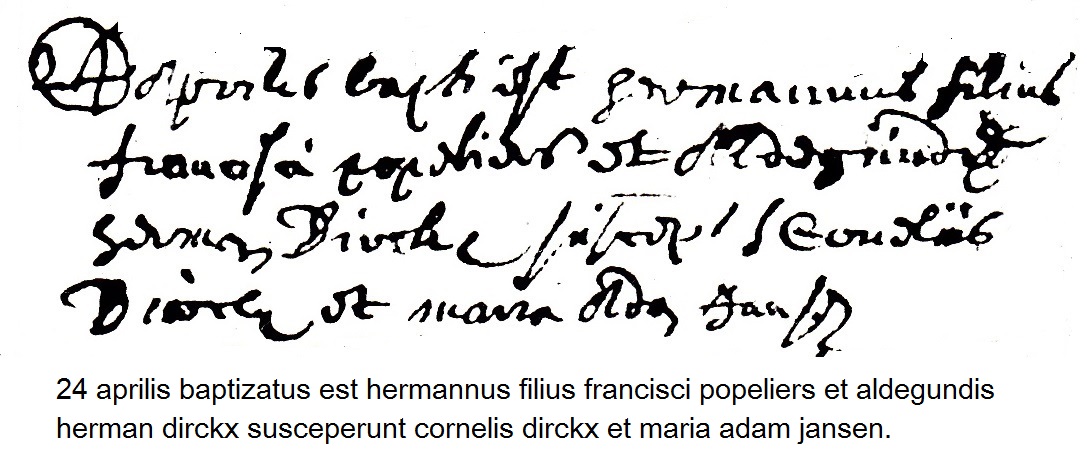 24 aprilis bapti est hermannus filius
francisci popeliers et Aldegundis
herman Dirckx suscep Cornelis
Dirckx et maria Adam Jansen
24 aprilis baptizatus est hermannus filius francisci popeliers et aldegundis
herman dirckx susceperunt cornelis dirckx et maria adam jansen.